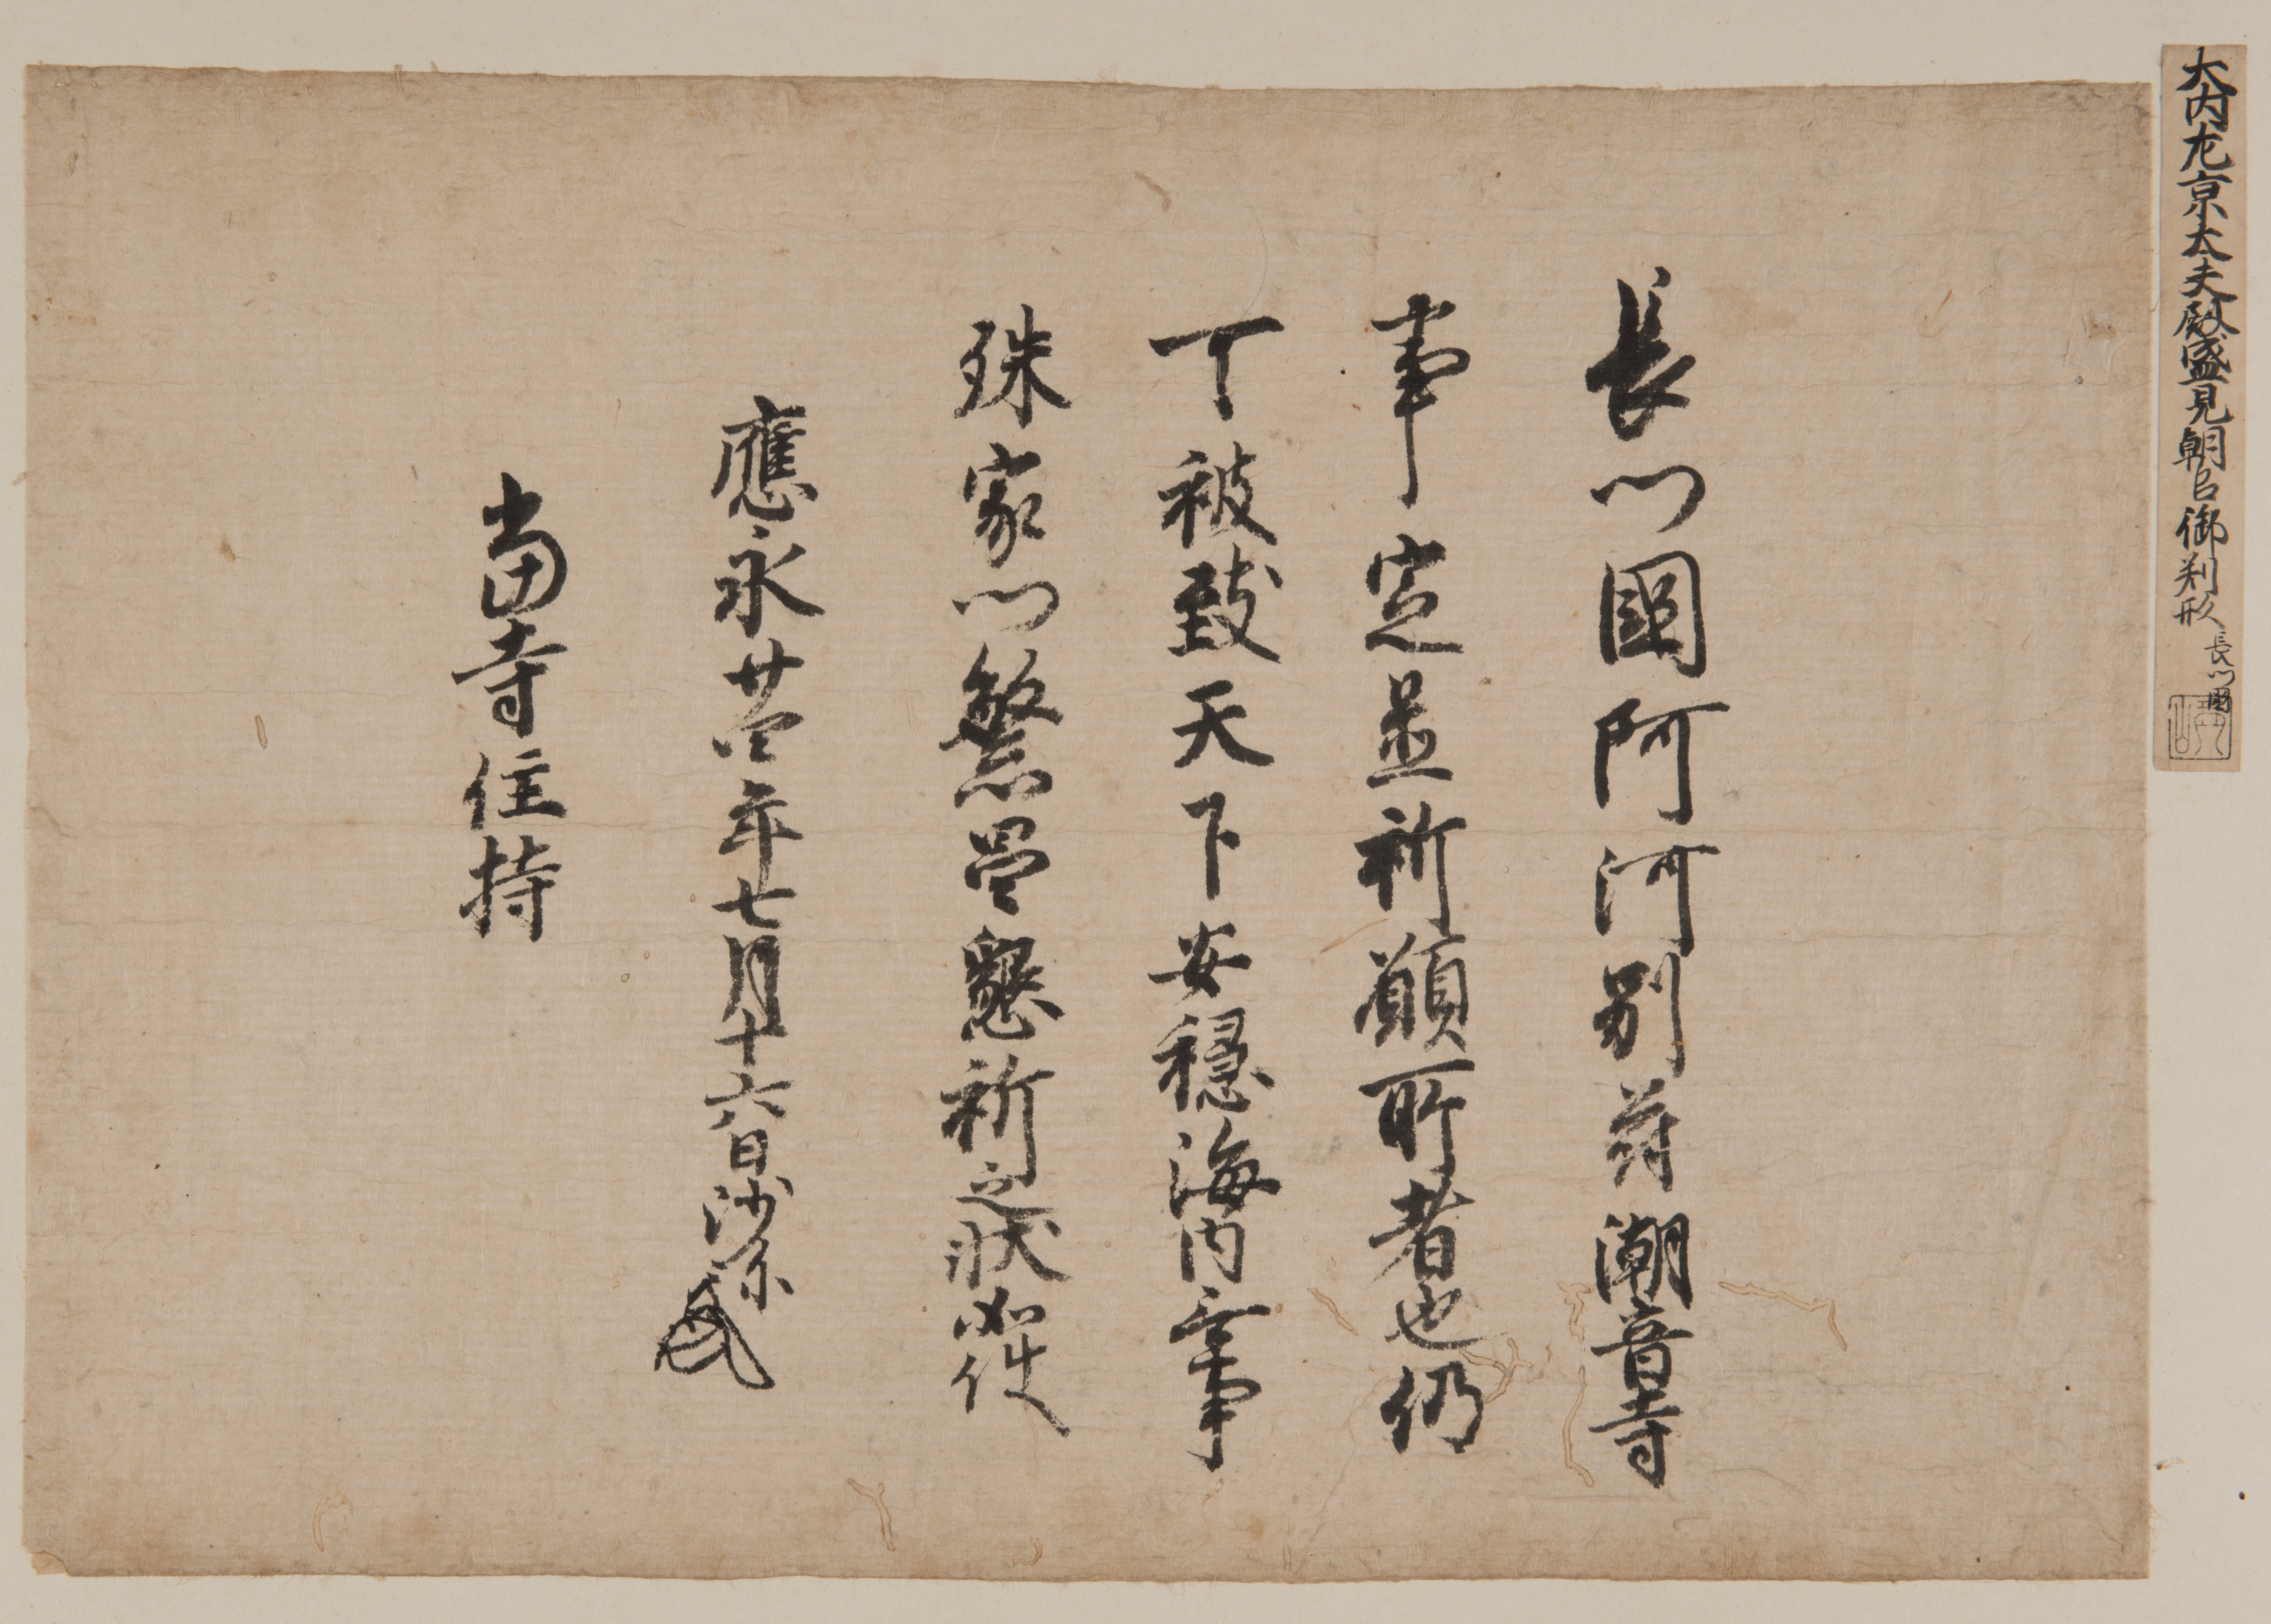 大内左京大夫殿盛見朝臣御判形 長門國
長門國阿河別符潮音寺
事定置祈願所者也仍
可被致天下安穏海内無事
殊家門繁昌懇祈之状如件
應永廿四年七月十六日沙弥
當寺住持